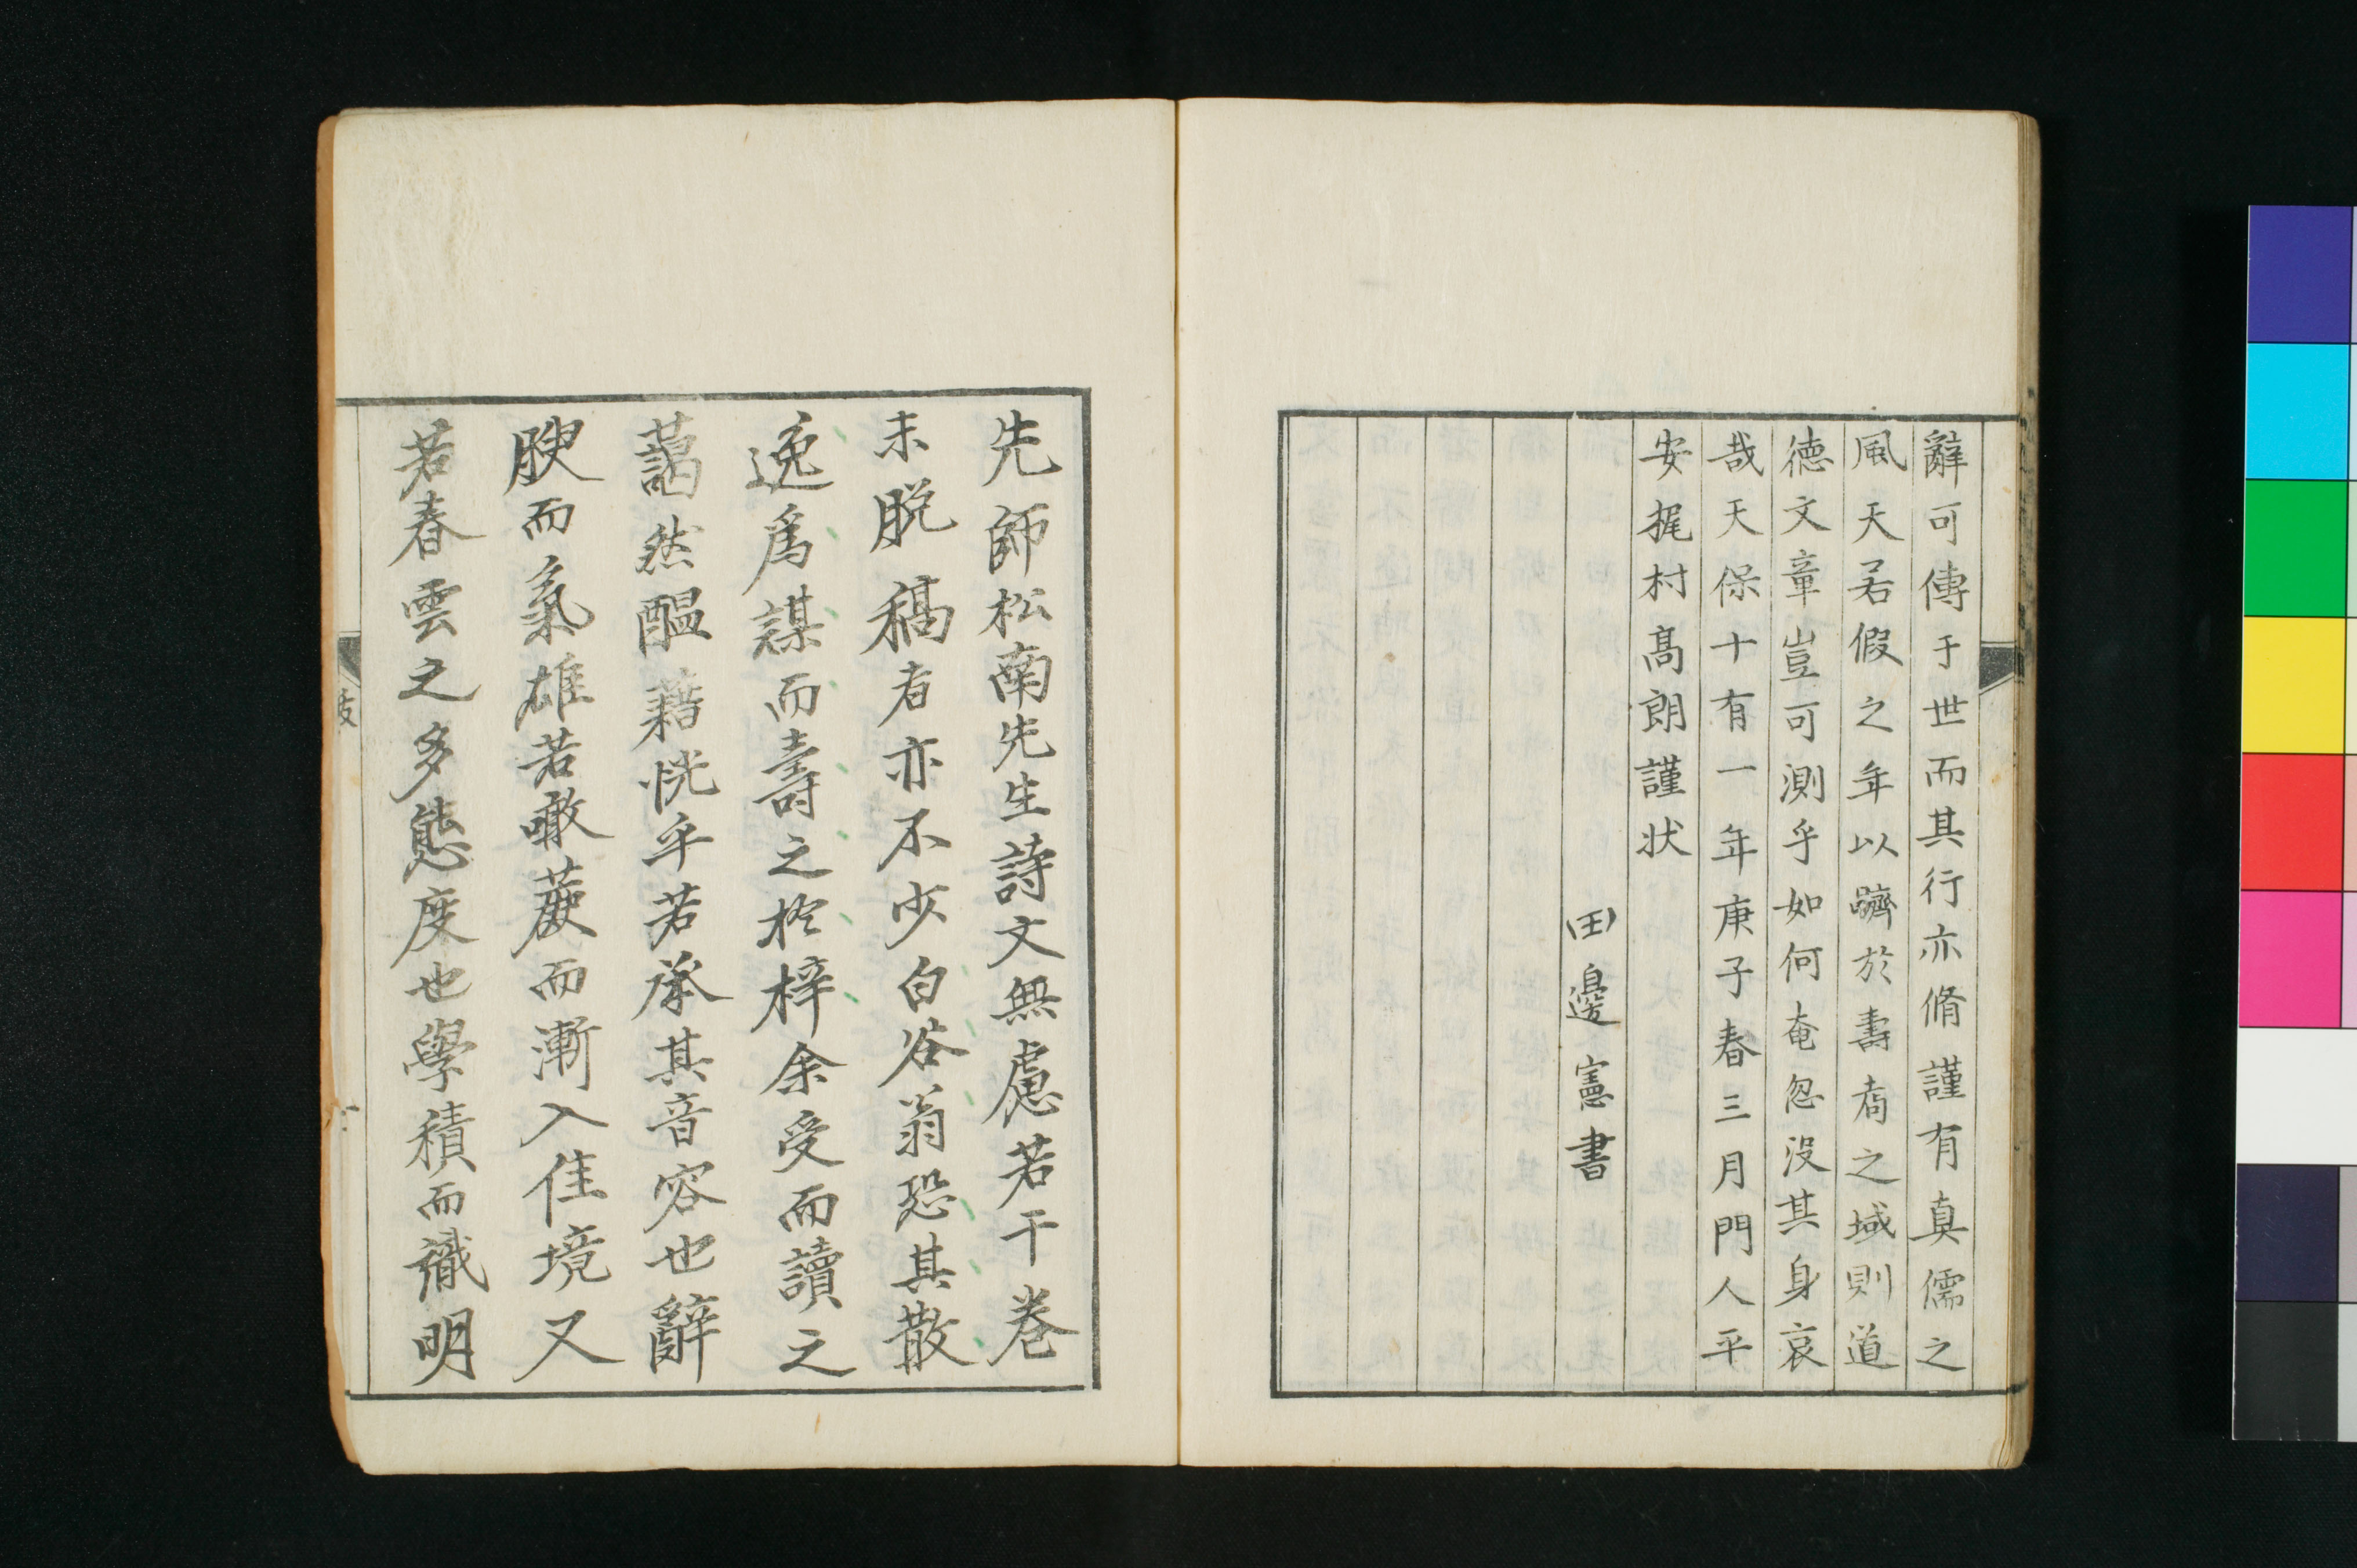 辭可傳于世而其行亦脩謹有真儒之
風天若假之年以躋於壽耇之域則道
德文章豈可測乎如何奄忽没其身哀
哉天保十有一年庚子春三月門人平
安梶村髙朗謹状
田邊憲書
先師松南先生詩文無慮若干巻
未脱稿者亦不少白谷翁恐其散
逸為謀而壽之於梓余受而讀之
藹然醞藉恍乎若承其音容也辭
腴而氣雄若噉蔗而漸入佳境又
若春雲之多態度也學積而識明
跋